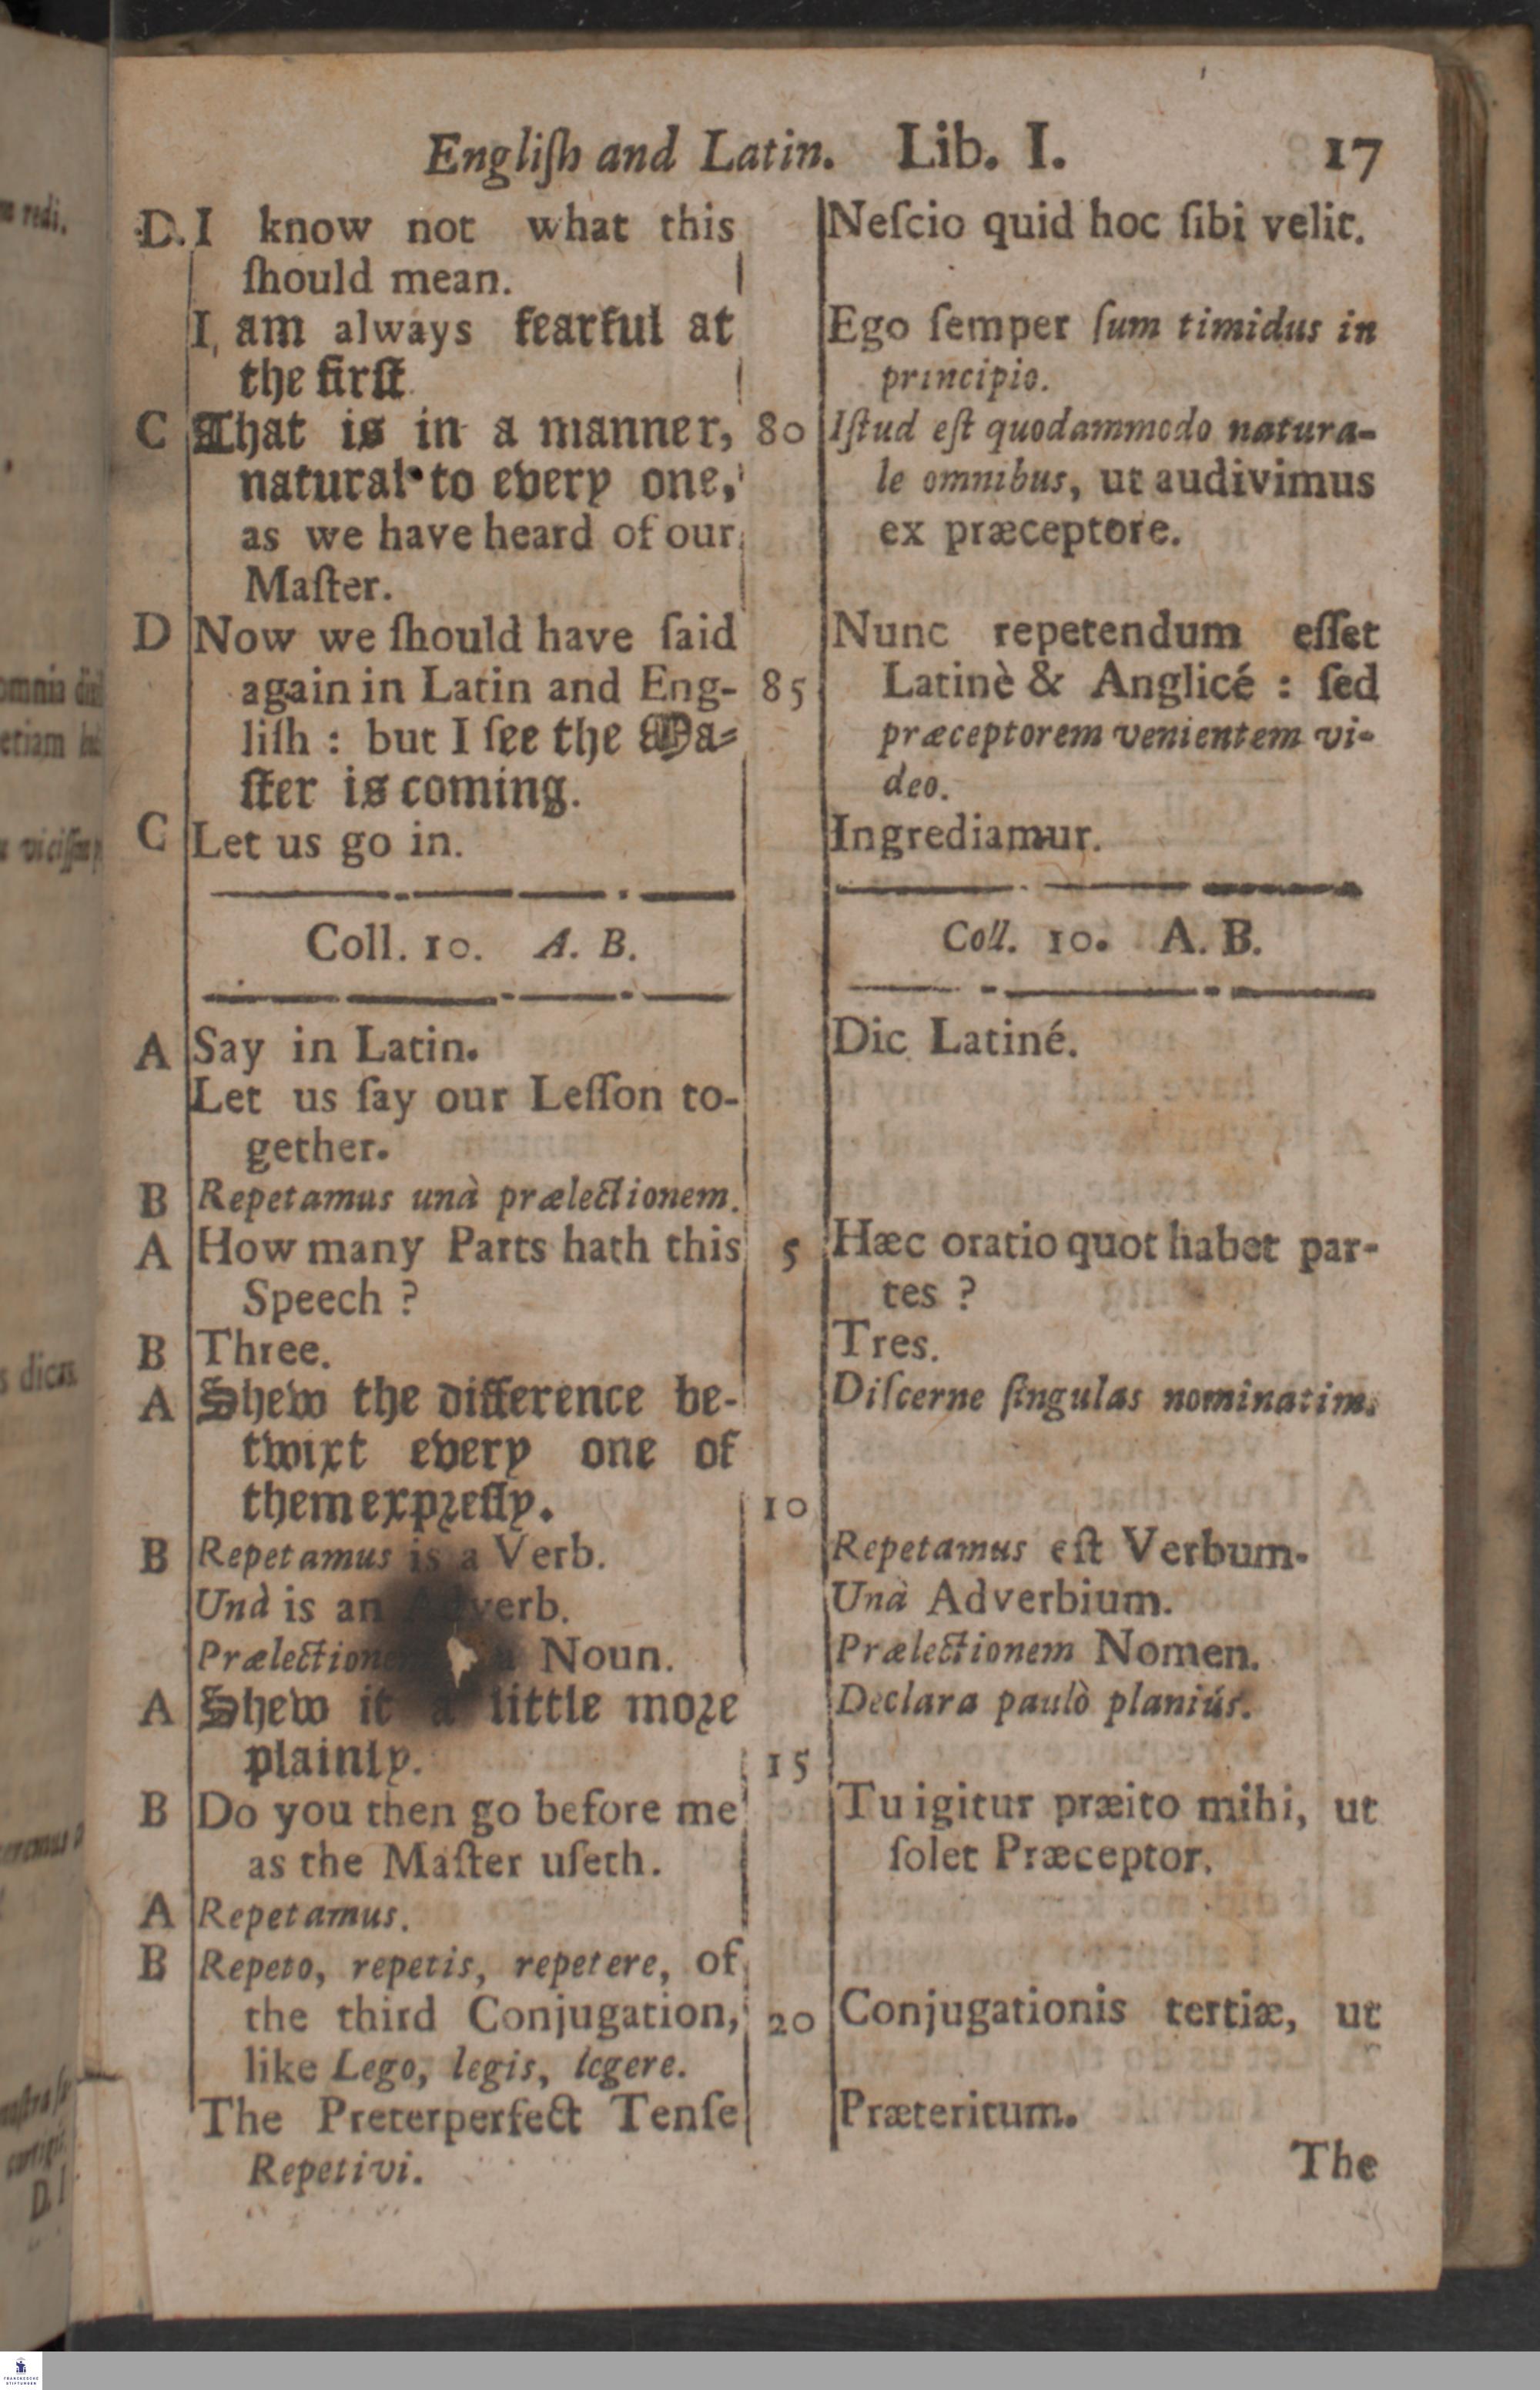 Engliſh and Latin. Lib. I. 17
D. I know not what this
ſhould mean.
I am always fearful at
the firſt
C That is in a manner,
natural to every one,
as we have heard of our
Maſter.
D Now we ſhould have ſaid
again in Latin and Eng-
liſh : but I ſee the Ma-
ſter is coming.
C Let us go in.
Coll. 10. A. B.
A Say in Latin.
Let us ſay our Leſſon to-
gether.
B Repetamus unà prælectionem.
A How many Parts hath this
Speech ?
B Three.
A Shew the difference be-
twixt every one of
them expreſly.
B Repetamus is a Verb.
Unà is an Adverb.
Noun.
A Shew it a little more
plainly.
B Do you then go before me
as the Maſter uſeth.
A Repetamus.
B Repeto, repetis, repetere, of
the third Conjugation,
like Lego, legis, legere.
The Preterperfect Tenſe
Repetivi.
80
85
5
10
15
20
Neſcio quid hoc ſibi velit.
Ego ſemper ſum timidus in
principio.
Iſtud eſt quodammodo natura-
le omnibus, ut audivimus
ex præceptore.
Nunc repetendum eſſet
Latinè & Anglicé : ſed
præceptorem venientem vi-
deo.
Ingrediamur.
Coll. 10. A. B.
Dic Latiné.
Hæc oratio quot habet par-
tes ?
Tres.
Diſcerne ſingulas nominatim.
Repetamus eſt Verbum.
Unà Adverbium.
Prælectionem Nomen.
Declara paulò planiús.
Tu igitur præito mihi, ut
ſolet Præceptor.
Conjugationis tertiæ, ut
Præteritum.
The